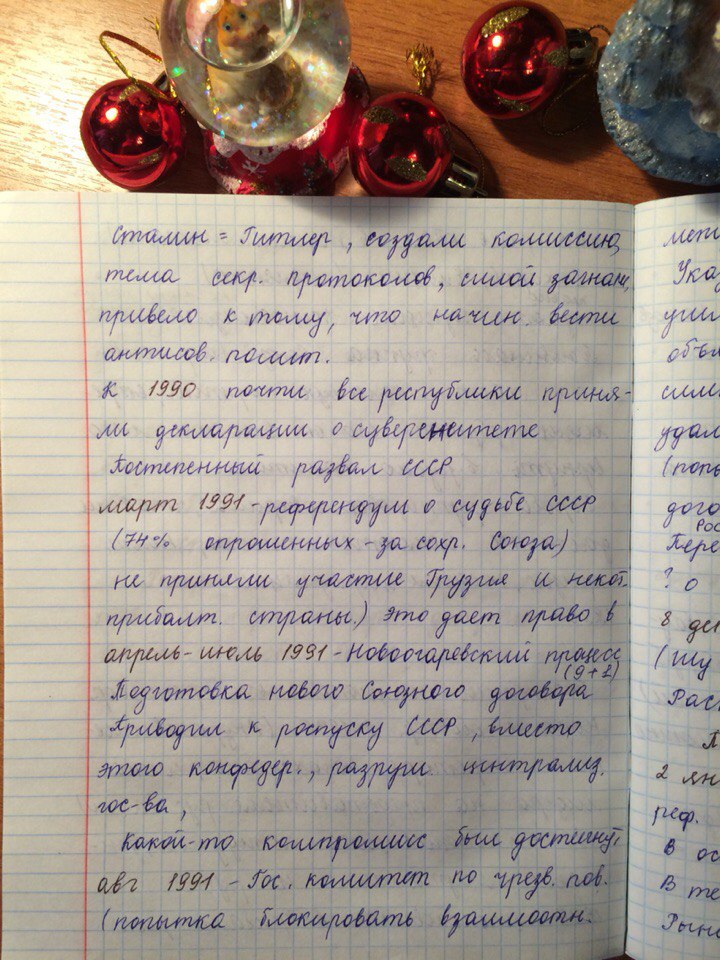 Сталин = Гитлер, создали комиссию,
тема секр. протоколов, силой загнан,
привело к тому, что начин. вести
антисов. полит.
К 1990 почти все республики приня-
ли декларации о суверенитете
Постепенный развал СССР
март 1991 - референдум о судьбе СССР
(74% опрошенных - за сохр. Союза)
не приняли участие Грузия и некот.
прибалт. страны.) это дает право в
апрель-июль 1991 - Новоогаревский процесс
(9+1)
Подготовка нового Союзного договора
Приводил к роспуску СССР, вместо
этого конфедер., разруш централиз.
гос-ва,
Какой-то компромисс был достигнут,
авг 1991 - Гос. комитет по чрезв. пов.
(попытка блокировать взаимоотн.
Указ
(попы
дого
Рос
Пере
? о
8 де
Расп
2 ян
реф.
В ос
В те
Рын